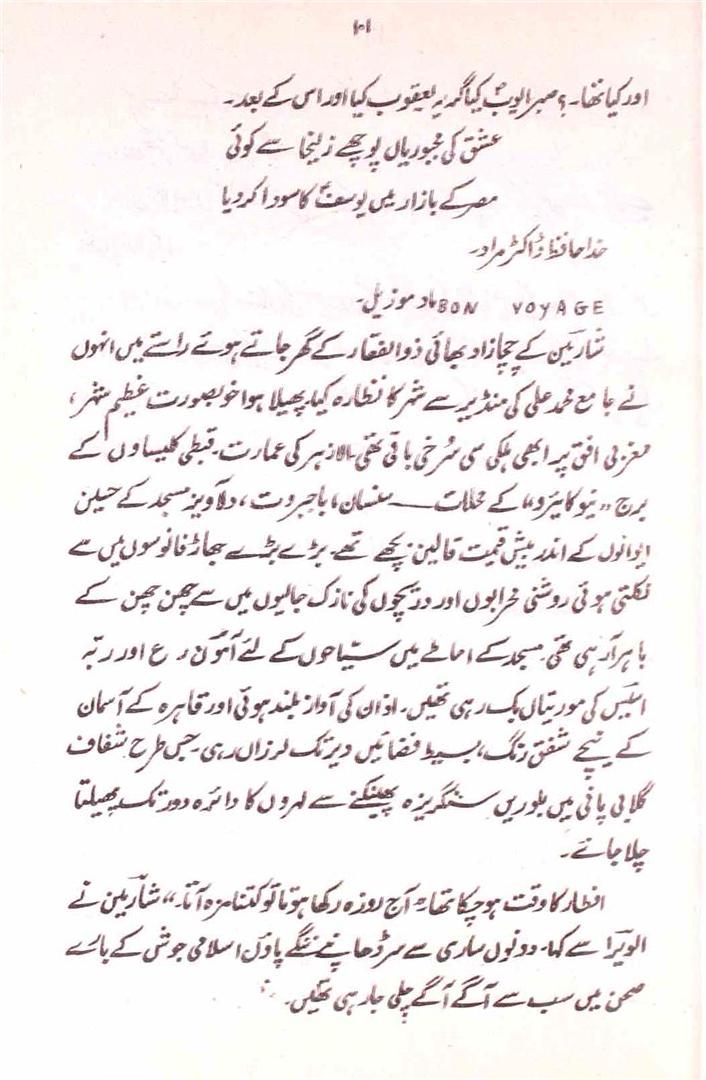 ۱۰۱
اور کیا تھا۔؟ صبر ایوبؑ کیا گریہ یعقوب کیا اور اس کے بعد۔
عشق کی مجبوریاں پوچھے زلیخا سے کوئی
مصر کے بازار میں یوسفؑ کا سودا کر دیا
خدا حافظ ڈاکٹر مراد۔
BON VOYAGE ماد موزیل۔
شارمین کے چچازاد بھائی ذوالفقار کے گھر جاتے ہوئے راستے میں انہوں
نے جامع محمد علی کی منڈیر سے شہر کا نظارہ کیا۔ پھیلا ہوا خوبصورت عظیم شہر،
مغربی افق پر ابھی ہلکی سی سُرخی باقی تھی۔ الازہر کی عمارت۔ قبطی کلیساؤں کے
برج ”نیو کائیرو“ کے محلات — سنسان، باجبروت، دلآویز مسجد کے حسین
ایوانوں کے اندر بیش قیمت قالین بچھے تھے۔ بڑے بڑے جھاڑ فانوسوں میں سے
نکلتی ہوئی روشنی محرابوں اور دریچوں کی نازک جالیوں میں سے چھن چھن کے
باہر آ رہی تھی۔ مسجد کے احاطے میں سیّاحوں کے لئے آمون رع اور ربّہ
اسیس کی مورتیاں بک رہی تھیں۔ اذان کی آواز بلند ہوئی اور قاہرہ کے آسمان
کے نیچے شفق رنگ، بسیط فضائیں دیر تک لرزاں رہی۔ جس طرح شفاف
گلابی پانی میں بلوریں سنگریزہ پھینکنے سے لہروں کا دائرہ دور تک پھیلتا
چلا جائے۔
افطار کا وقت ہو چکا تھا ”آج روزہ رکھا ہوتا تو کتنا مزہ آتا“ شارمین نے
الویرا سے کہا۔ دونوں ساری سے سر ڈھانپے ننگے پاؤں اسلامی جوش کے مارے
صحن میں سب سے آگے آگے چلی جا رہی تھیں۔